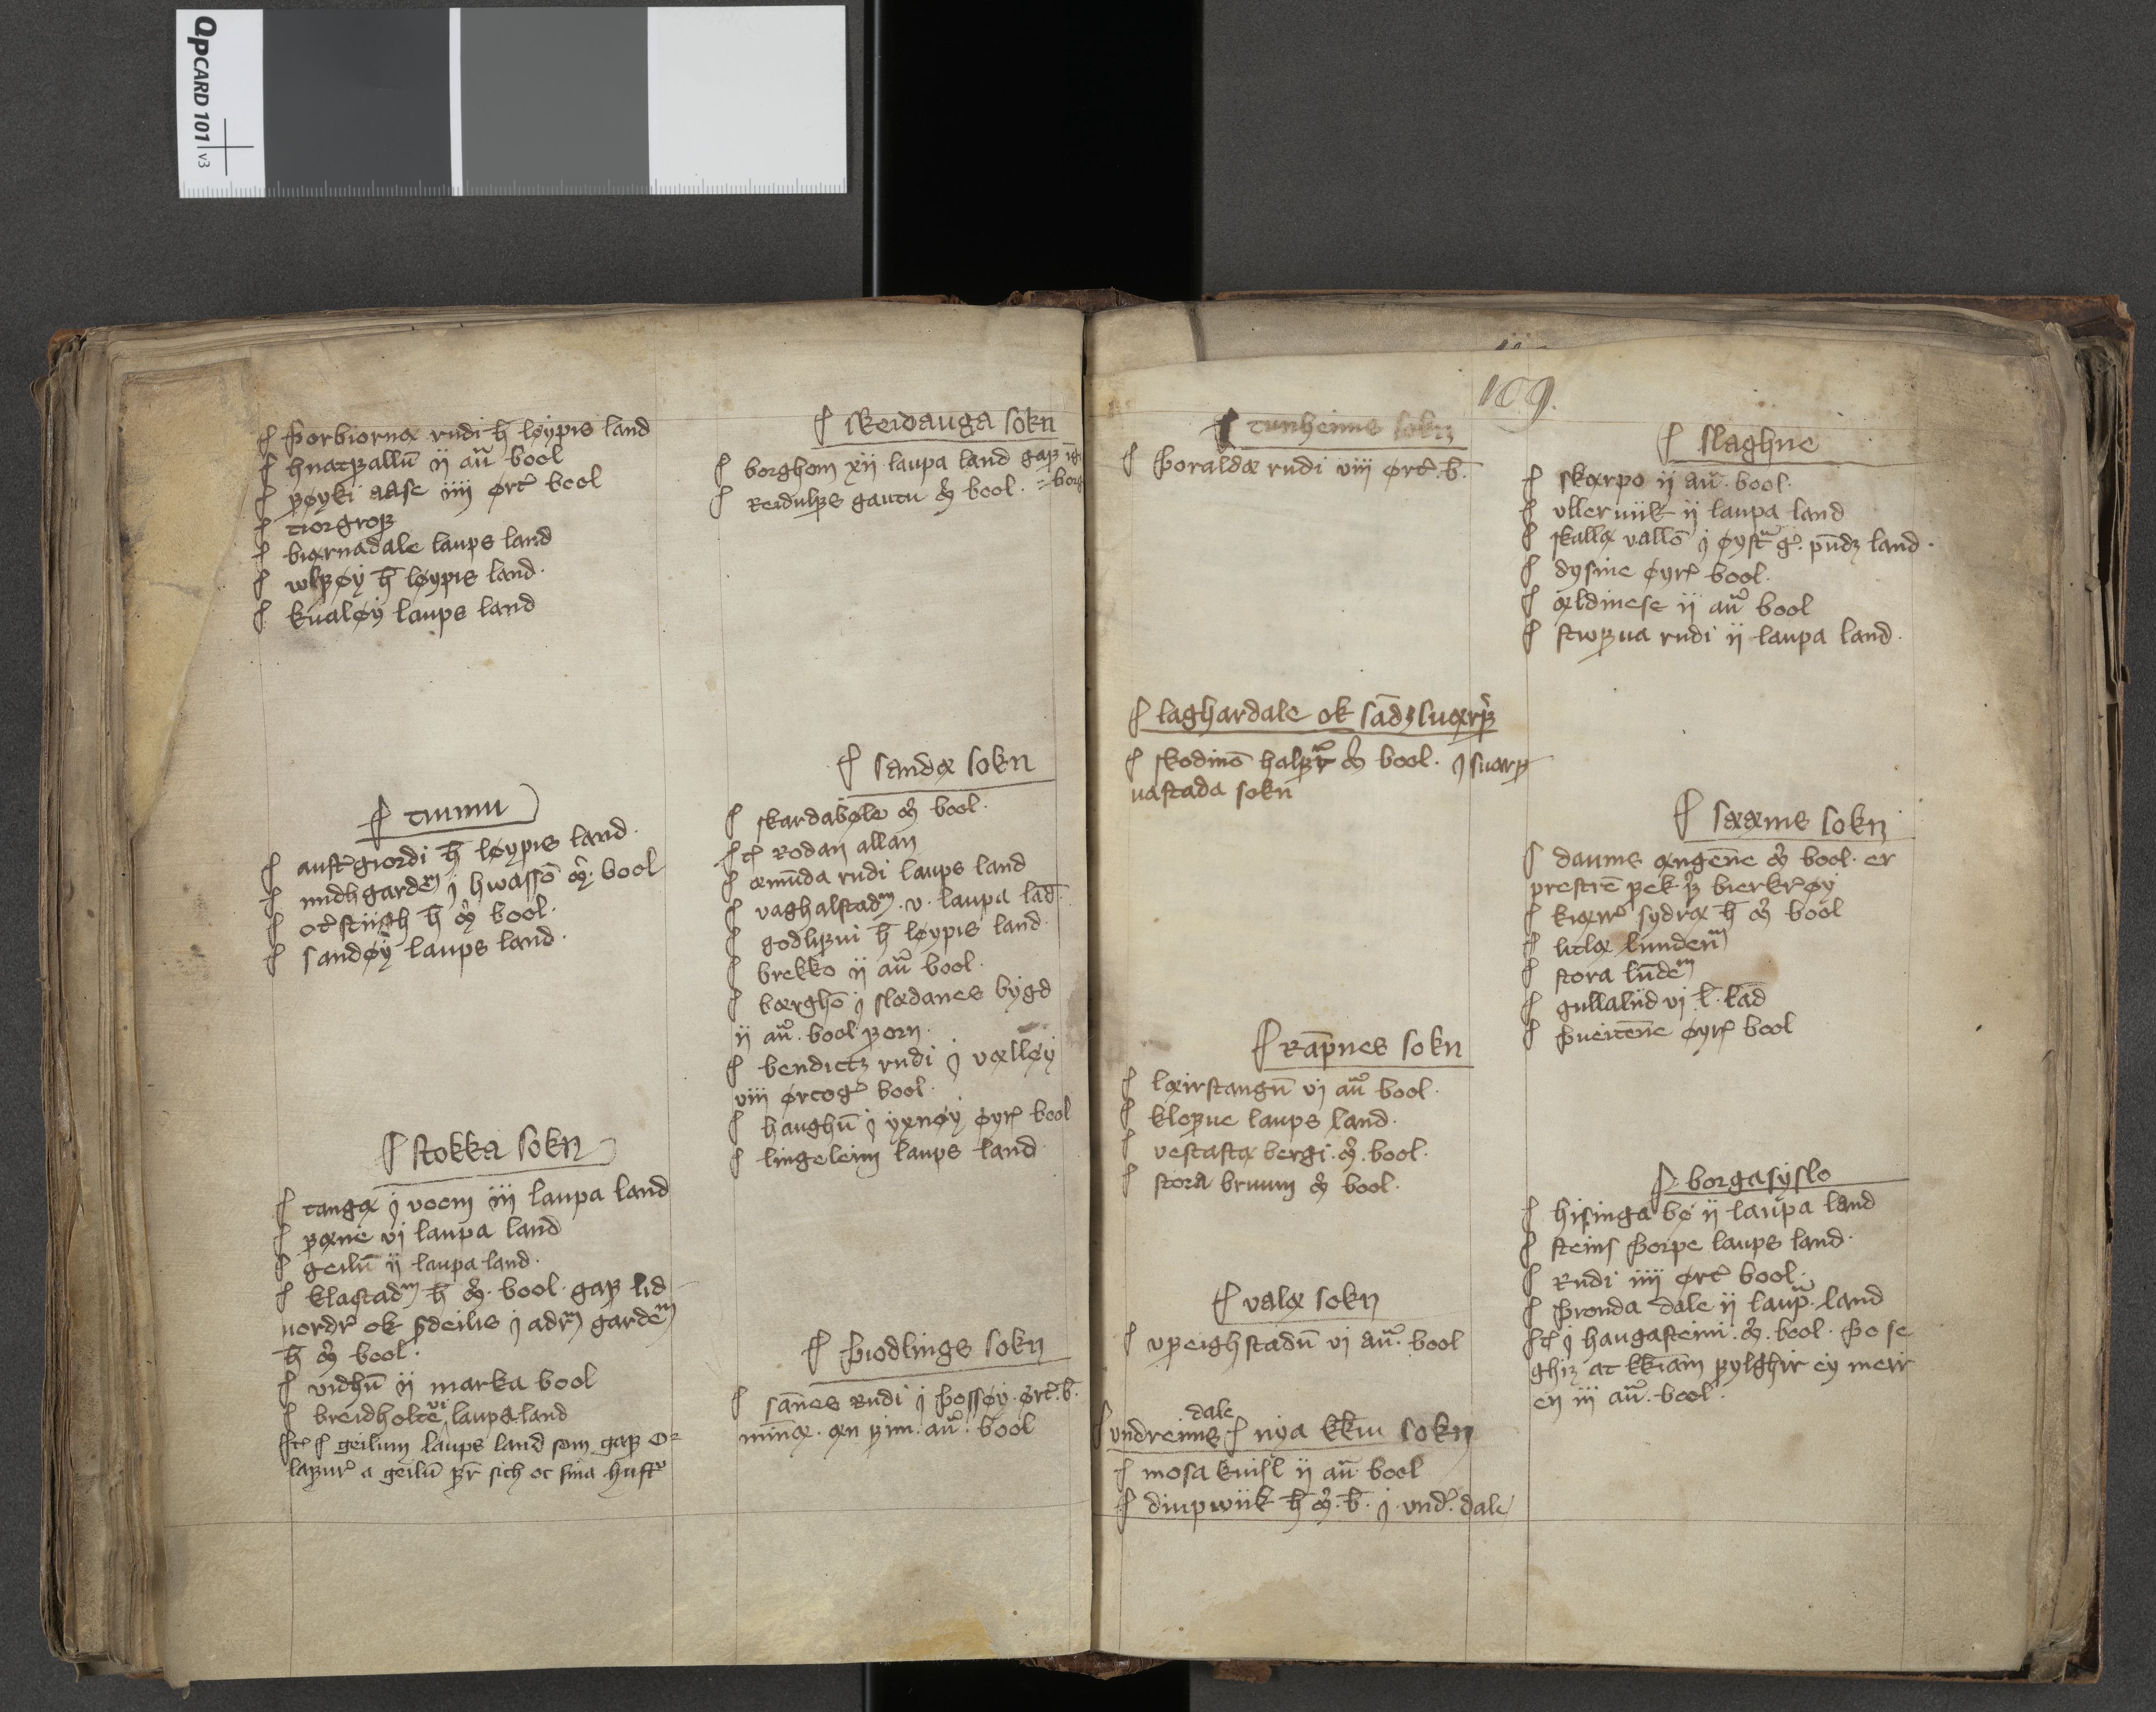 QPCARD 101 v3
¶ Þorbiornæ rudi h̄ løypis land
¶ hnatꝩallū ij aū bool
¶ ꝩøyki aase iiij ørt᷎ bool
¶ tiorgroꝩ
¶ biærnadale laups land
¶ wlꝩøy h̄ løypis land.
¶ kualøy laups land
¶ tiumu
¶ aust᷎giordi h̄ løypis land.
¶ midhgardeᵐ j hwassō m᷎. bool
¶ ot᷎stiigh h̄ m᷎ bool.
¶ sandøy laups land.
¶ stokka sokn
¶ tangæ j voem iij laupa land
¶ ꝩæne vj laupa land
¶ geilū ij laupa land.
¶ klastadᵐ h̄ m᷎. bool. gaꝩ lid
nordr᷎ ok sdeilis j adrᵐ gardeᵐ
h̄ m᷎ bool.
¶ vidhū ij marka bool
¶ breidholte vj laupa land
Jt᷎ ¶ geilum laups land som gaꝩ o=
laꝩur᷎ a geilū ꝩr̄ sich oc sina hust᷎
¶ skeidauga sokn
¶ borghom xij laupa land gaꝩ
¶ Reidulꝩs gautu m᷎ bool. = borg
¶ sandæ sokn
¶ skardabøle m᷎ bool.
Jt᷎ Rodan allan
¶ æmūda rudi laups land
¶ vaghalstadᵐ. v. laupa lād
¶ godliꝩui h̄ løypis land.
¶ brekko ij aū bool.
¶ bærghō j slædanes bygd
ij aū. bool ꝩorn.
¶ bendictꝫ rudi j vælløy
viij ørtog᷎ bool.
¶ haughū j yxnøy øyr᷎ bool
¶ lingeleim laups land
¶ Þiodlings sokn
¶ sānes Rudi j Þossøy. ørt᷎. b̄.
mīnæ. æn ꝩim. aū. bool
109.
¶ tunheims sokn
¶ Þoraldæ rudi viij ørt᷎. b̄.
¶ laghardale ok sādꝫsuærꝩ᷎
¶ skodinō halꝩr m᷎ bool. j suarꝩ
uastada sokn
¶ Raꝩnes sokn
¶ læirstangū vj aū bool.
¶ kloꝩue laups land.
¶ vestastæ bergi. m᷎. bool.
¶ stora bruum m᷎ bool.
¶ valæ sokn
¶ vꝩeighstadū vj aū. bool
¶ undreims dale ¶ nya kk̄iu sokn
¶ mosa kuisl ij aū bool
¶ diupwiik h̄ m᷎. b̄. j. vnd᷎. dale
¶ slaghne
¶ skærpo ij aū. bool.
¶ vlleruiik ij laupa land
¶ skallæ vallō j øystᵘg᷎. pūdꝫ land.
¶ dysine øyr᷎ bool.
¶ ældinese ij aū bool
¶ stwꝩua rudi ij laupa land.
¶ sææms sokn
¶ daums ængēne m᷎ bool. er
prestrē ꝩek ꝩ᷎ bierkr᷎øy
¶ kiærr᷎ sydræ h̄ m᷎ bool
¶ litlæ lundenᵐ
¶ stora lūdeᵐ
¶ gullaliid vj. l̄. lād
¶ Þueitēne øyr᷎ bool
¶ borgasyslo
¶ hisinga bø ij laupa land
¶ steins Þorpe laups land.
¶ Rudi iiij ørt᷎ bool.
¶ Þronda dale ij laup᷎. land
Jt᷎ j haugasteini. m᷎. bool. Þo se
ghiꝫ at kk̄iam ꝩylghir ey meir
en iij aū. bool.